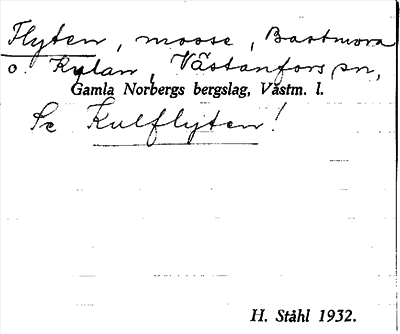 Flyten, mosse, Bastmora
o. Kylan, Västanfors sn,
Gamla Norbergs bergslag, Västm. l.
Se Kulflyten!
H. Ståhl 1932.